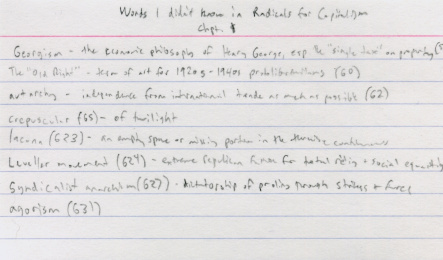 Words I didn't know in Radicals for Capitalism
Chpt.
Georgism - the economic philosophy of Henry George, esp the "single tax" on property
The "Old Right" - term of art for 1920s - 1940s (60)
autarchy - independence from international trade as much as possible (62)
crepuscular (65) - of twilight
lacuna (623) - an empty space or missing portion in the otherwise continuous
Leveller movement (624) - extreme republican for total + social equality
Syndicalist anarchism (627) - dictatorship of proles through strikes + force
agorism (631)